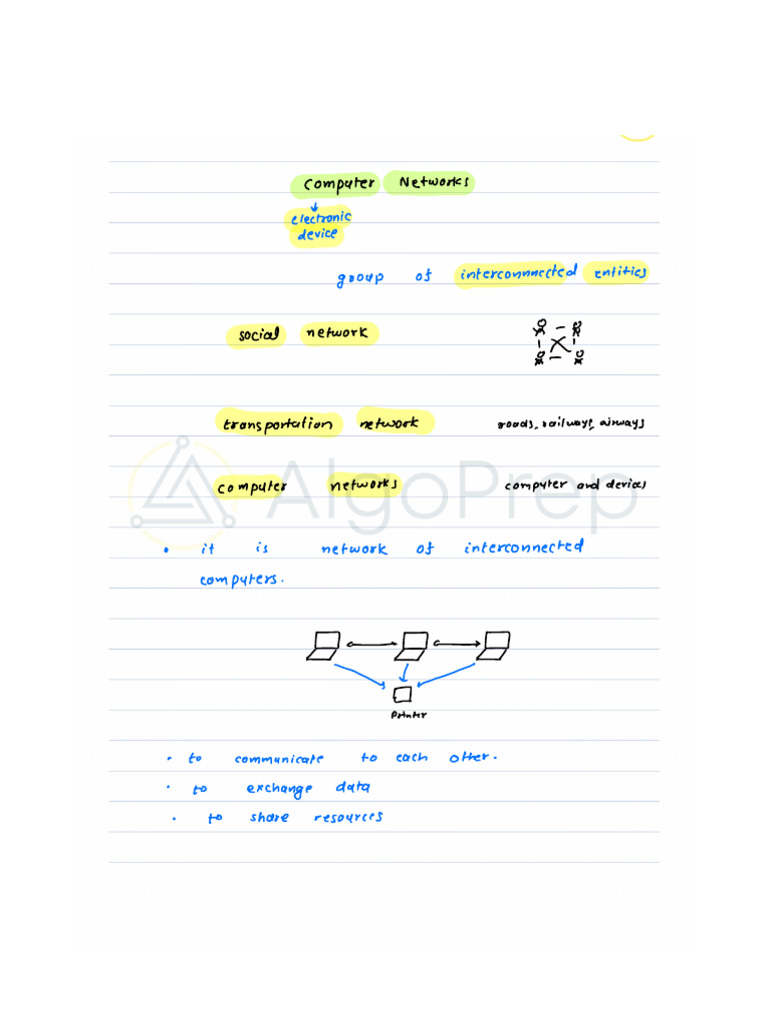 Computer Networks
electronic
device
group of interconnnected entities
social network
transportation network roads, railways, airways
computer networks computer and devices
AlgoPrep
• it is network of interconnected
computers.
Printer
• to communicate to each other.
• to exchange data
• to share resources